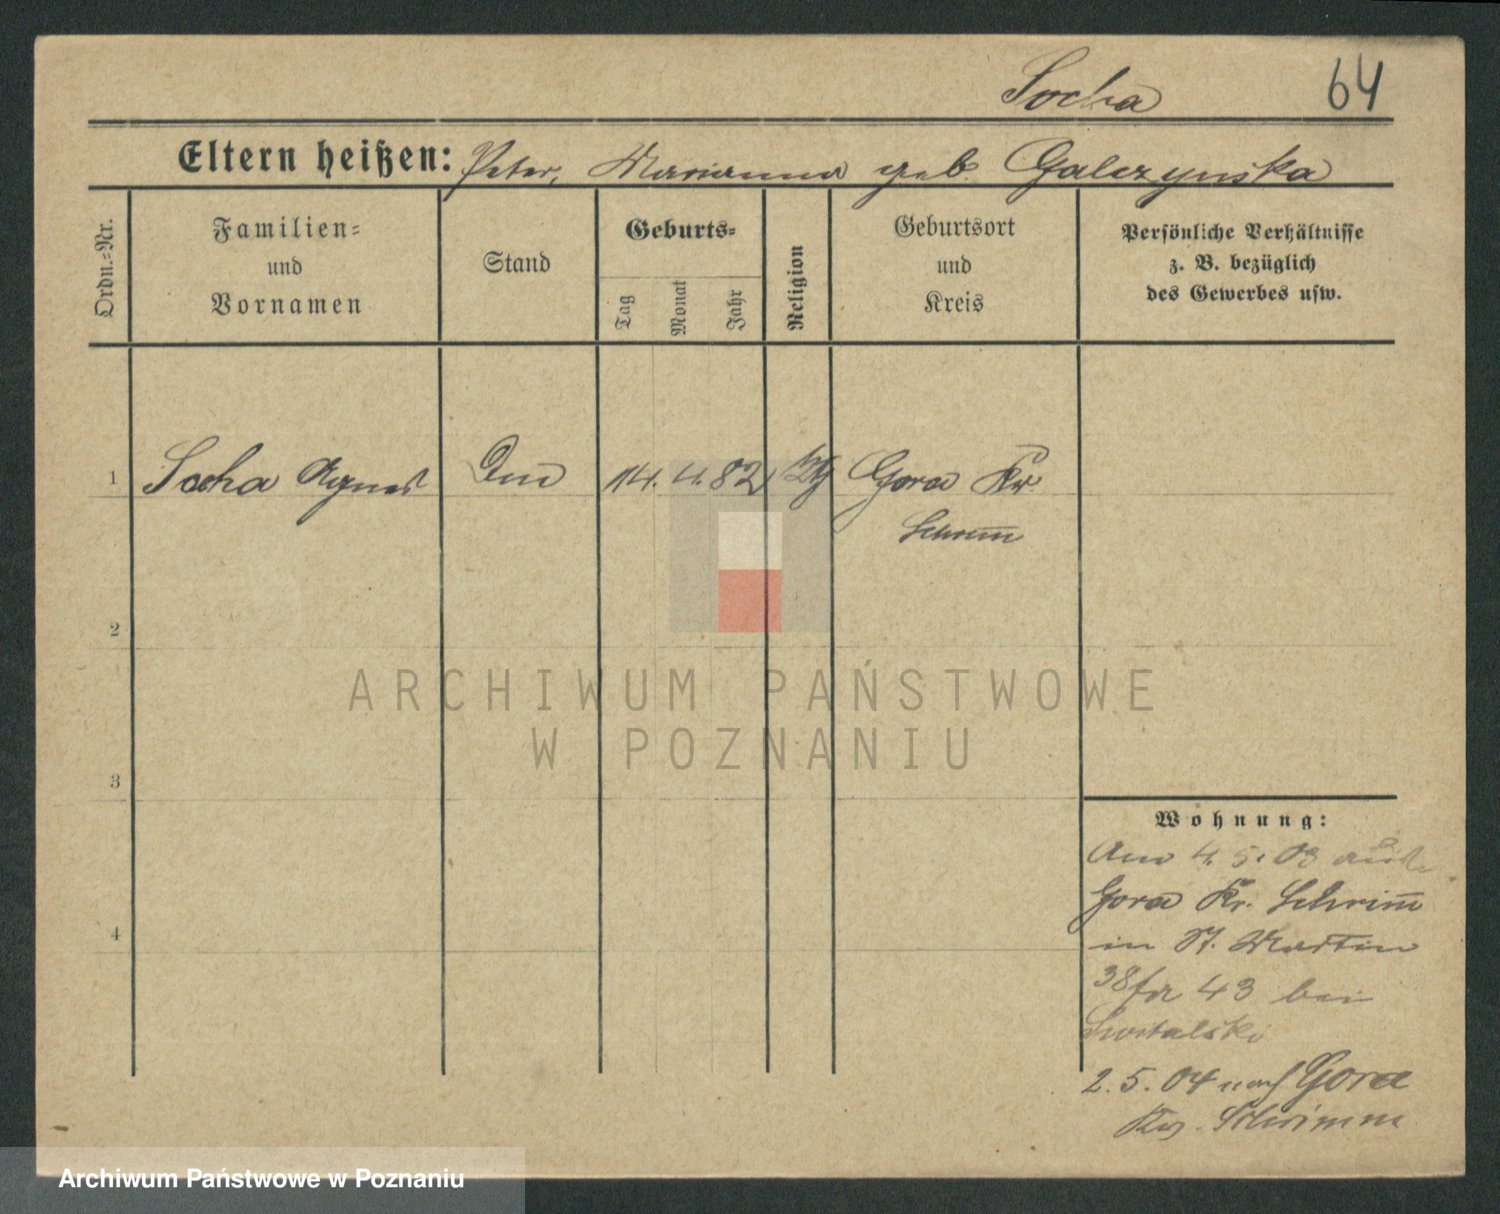 Socha 64
Eltern heißen: Peter, Marianna geb. Galczynska
Ordn.=Nr.
Familien=
und
Vornamen
Stand
Geburts=
Tag
Monat
Jahr
Religion
Geburtsort
und
Kreis
Persönliche Verhältnisse
z. B. bezüglich
des Gewerbes usw.
1 Socha Agnes 14. 4. 82 Gora Kr.
Schrim̄
2
ARCHIWUM PAŃSTWOWE
W POZNANIU
3
Wohnung:
Am 4. 5. 03 aus
Gora Kr. Schrim̄
4
in St. Martin
38 43 bei
2. 5. 04 nach Gora
Krs. Schrimm
Archiwum Państwowe w Poznaniu